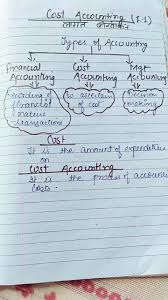 Cost Accounting (1.1)
लागत लेखांकन
Types of Accounting
Financial Accounting
Cost Accounting
Mgt Accounting
Recording of financial nature transactions
To ascertain of cost
Decision making
Cost
It is the amount of expenditure
on
Cost Accounting
It is the process of accounting
costs.